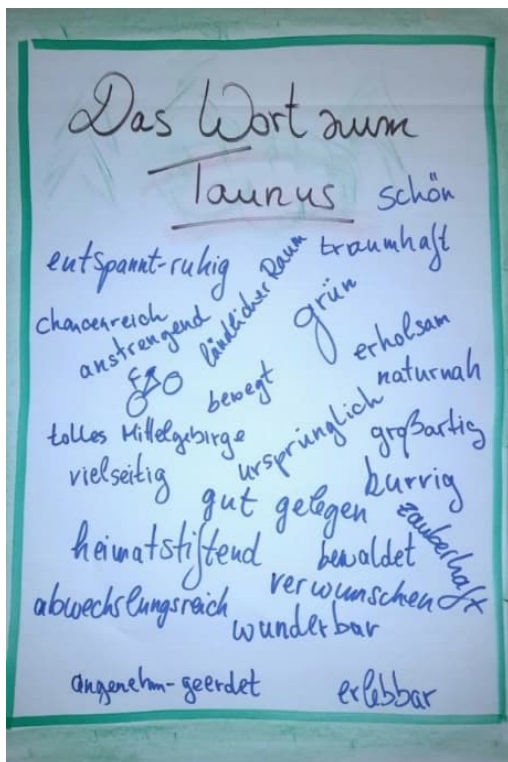 Das Wort zum
Taunus
schön
entspannt-ruhig
traumhaft
ländlicher Raum
chancenreich
grün
anstrengend
erholsam
bewegt
naturnah
tolles Mittelgebirge
ursprünglich
großartig
vielseitig
kurrig
gut gelegen
zauberhaft
heimatstiftend
bewaldet
verwunschen
abwechslungsreich
wunderbar
angenehm-geerdet
erlebbar